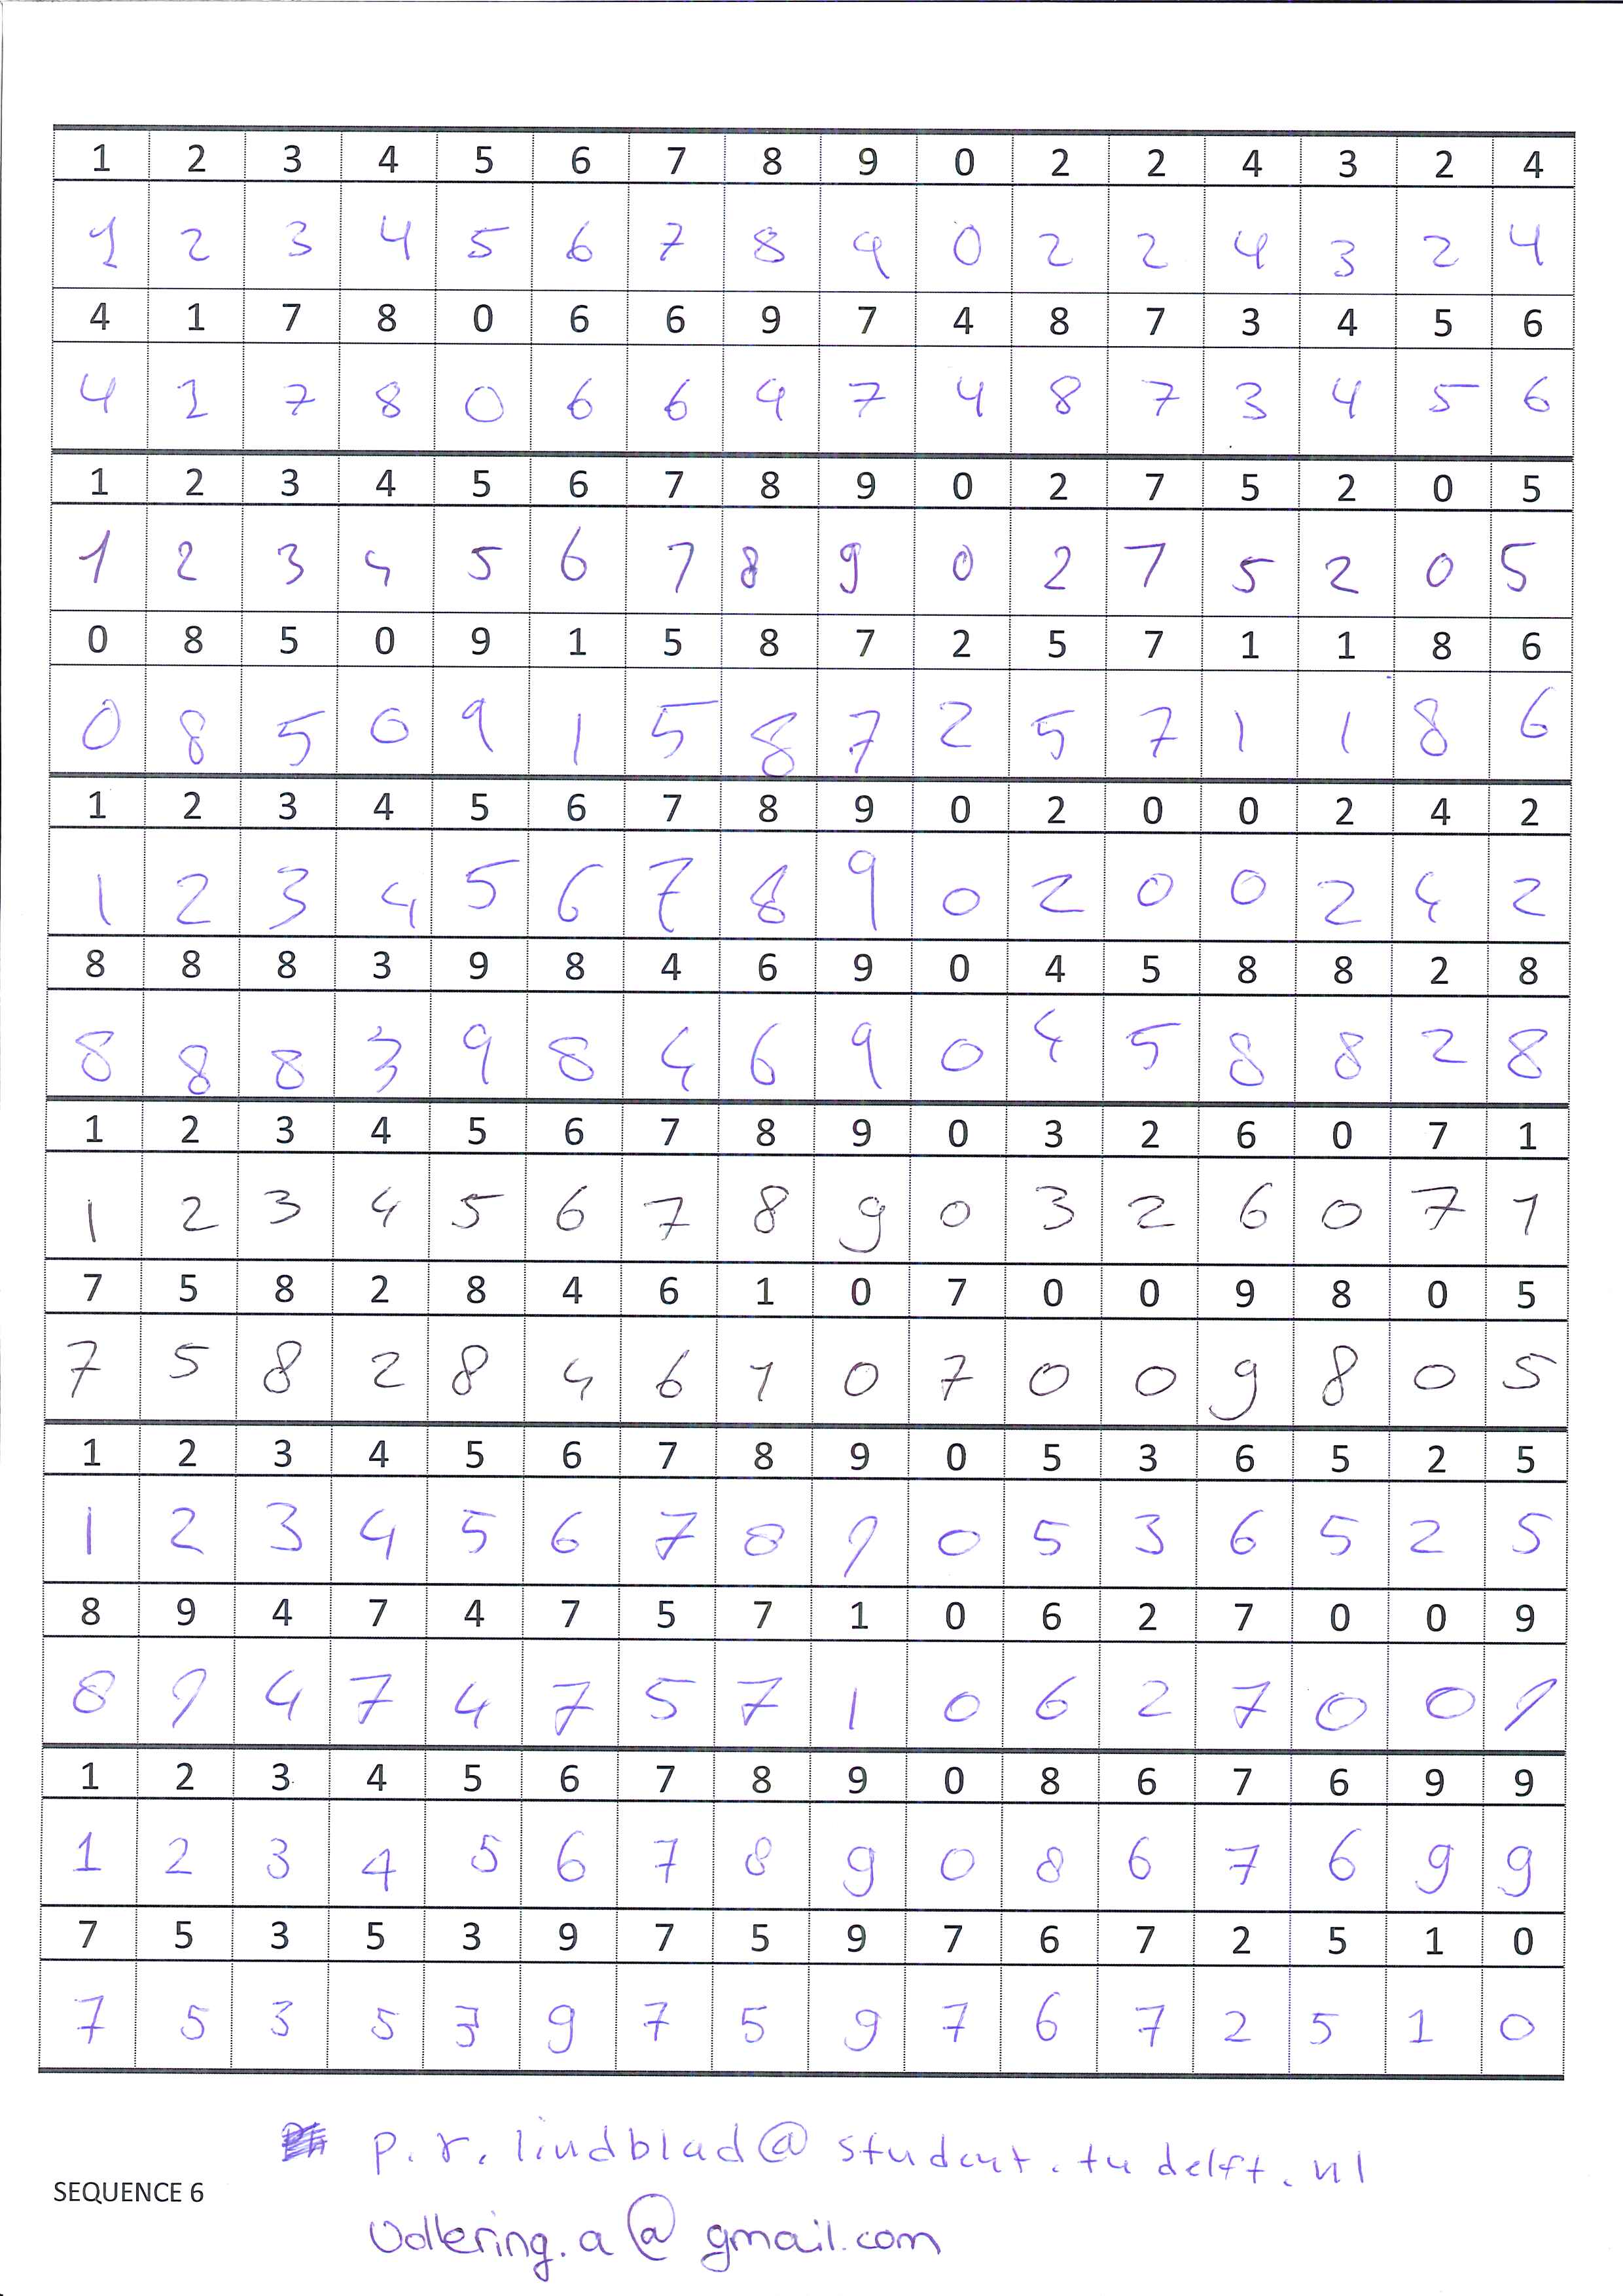 1 2 3 4 5 6 7 8 9 0 2 2 4 3 2 4
1 2 3 4 5 6 7 8 9 0 2 2 4 3 2 4
4 1 7 8 0 6 6 9 7 4 8 7 3 4 5 6
4 1 7 8 0 6 6 9 7 4 8 7 3 4 5 6
1 2 3 4 5 6 7 8 9 0 2 7 5 2 0 5
1 2 3 4 5 6 7 8 9 0 2 7 5 2 0 5
0 8 5 0 9 1 5 8 7 2 5 7 1 1 8 6
0 8 5 0 9 1 5 8 7 2 5 7 1 1 8 6
1 2 3 4 5 6 7 8 9 0 2 0 0 2 4 2
1 2 3 4 5 6 7 8 9 0 2 0 0 2 4 2
8 8 8 3 9 8 4 6 9 0 4 5 8 8 2 8
8 8 8 3 9 8 4 6 9 0 4 5 8 8 2 8
1 2 3 4 5 6 7 8 9 0 3 2 6 0 7 1
1 2 3 4 5 6 7 8 9 0 3 2 6 0 7 1
7 5 8 2 8 4 6 1 0 7 0 0 9 8 0 5
7 5 8 2 8 4 6 1 0 7 0 0 9 8 0 5
1 2 3 4 5 6 7 8 9 0 5 3 6 5 2 5
1 2 3 4 5 6 7 8 9 0 5 3 6 5 2 5
8 9 4 7 4 7 5 7 1 0 6 2 7 0 0 9
8 9 4 7 4 7 5 7 1 0 6 2 7 0 0 9
1 2 3 4 5 6 7 8 9 0 8 6 7 6 9 9
1 2 3 4 5 6 7 8 9 0 8 6 7 6 9 9
7 5 3 5 3 9 7 5 9 7 6 7 2 5 1 0
7 5 3 5 3 9 7 5 9 7 6 7 2 5 1 0
p.r.lindblad@student.tudelft.nl
SEQUENCE 6
@gmail.com